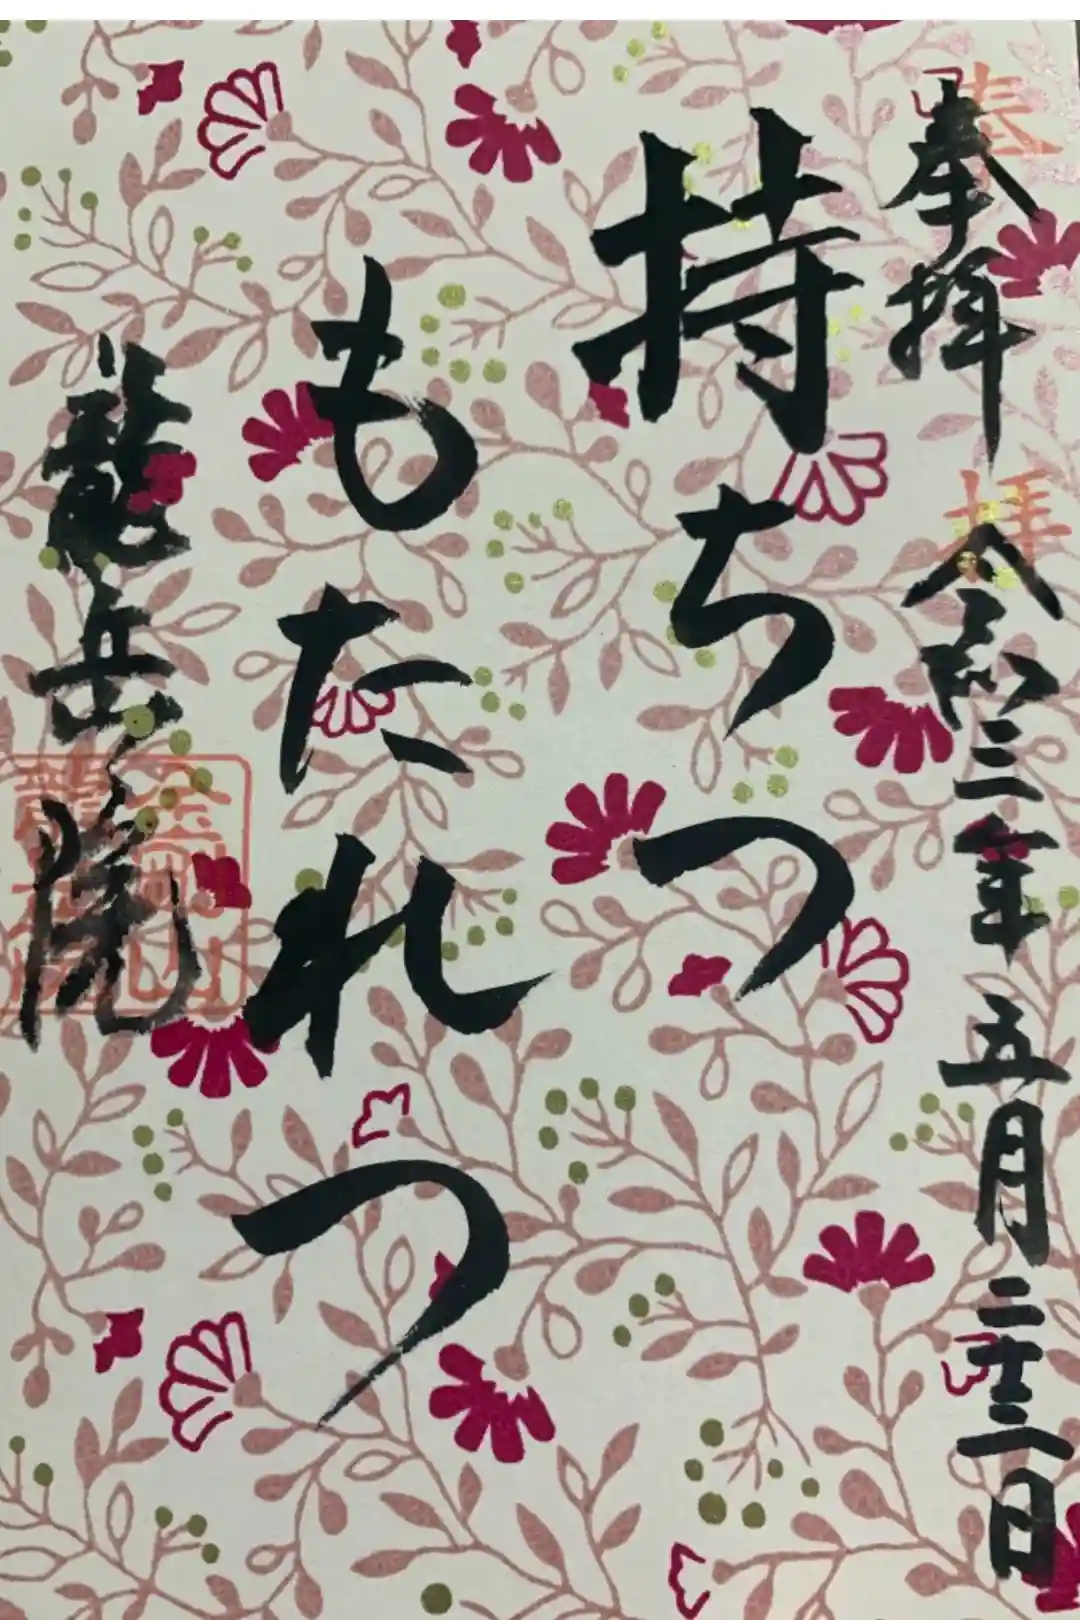 奉拝 令和三年五月二十三日
持ちつ
もたれつ
龍岳院
奉拝